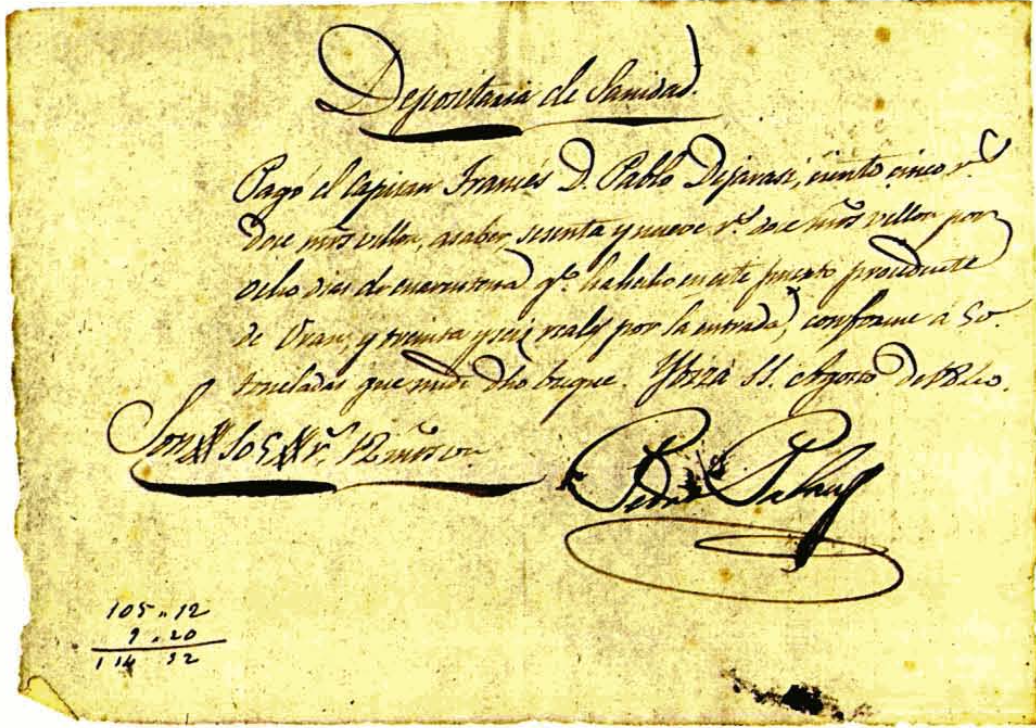 Depositaria de Sanidad
Pagó el Capitan Francés D. Pablo Dejarasi, ciento cinco r.s
doce mrs vellon, asaber, sesenta y nueve r.s doce mrs vellon por
ocho dias de cuarentena q.e ha hecho en este puerto procedente
de Oran, y treinta y seis reales por la entrada, conforme á 50.
toneladas que mide dho buque. Ybiza 11. Agosto de 1840.
Son 105 r.s 12 mrs vn
Palau
105 " 12
9 " 20
114 32